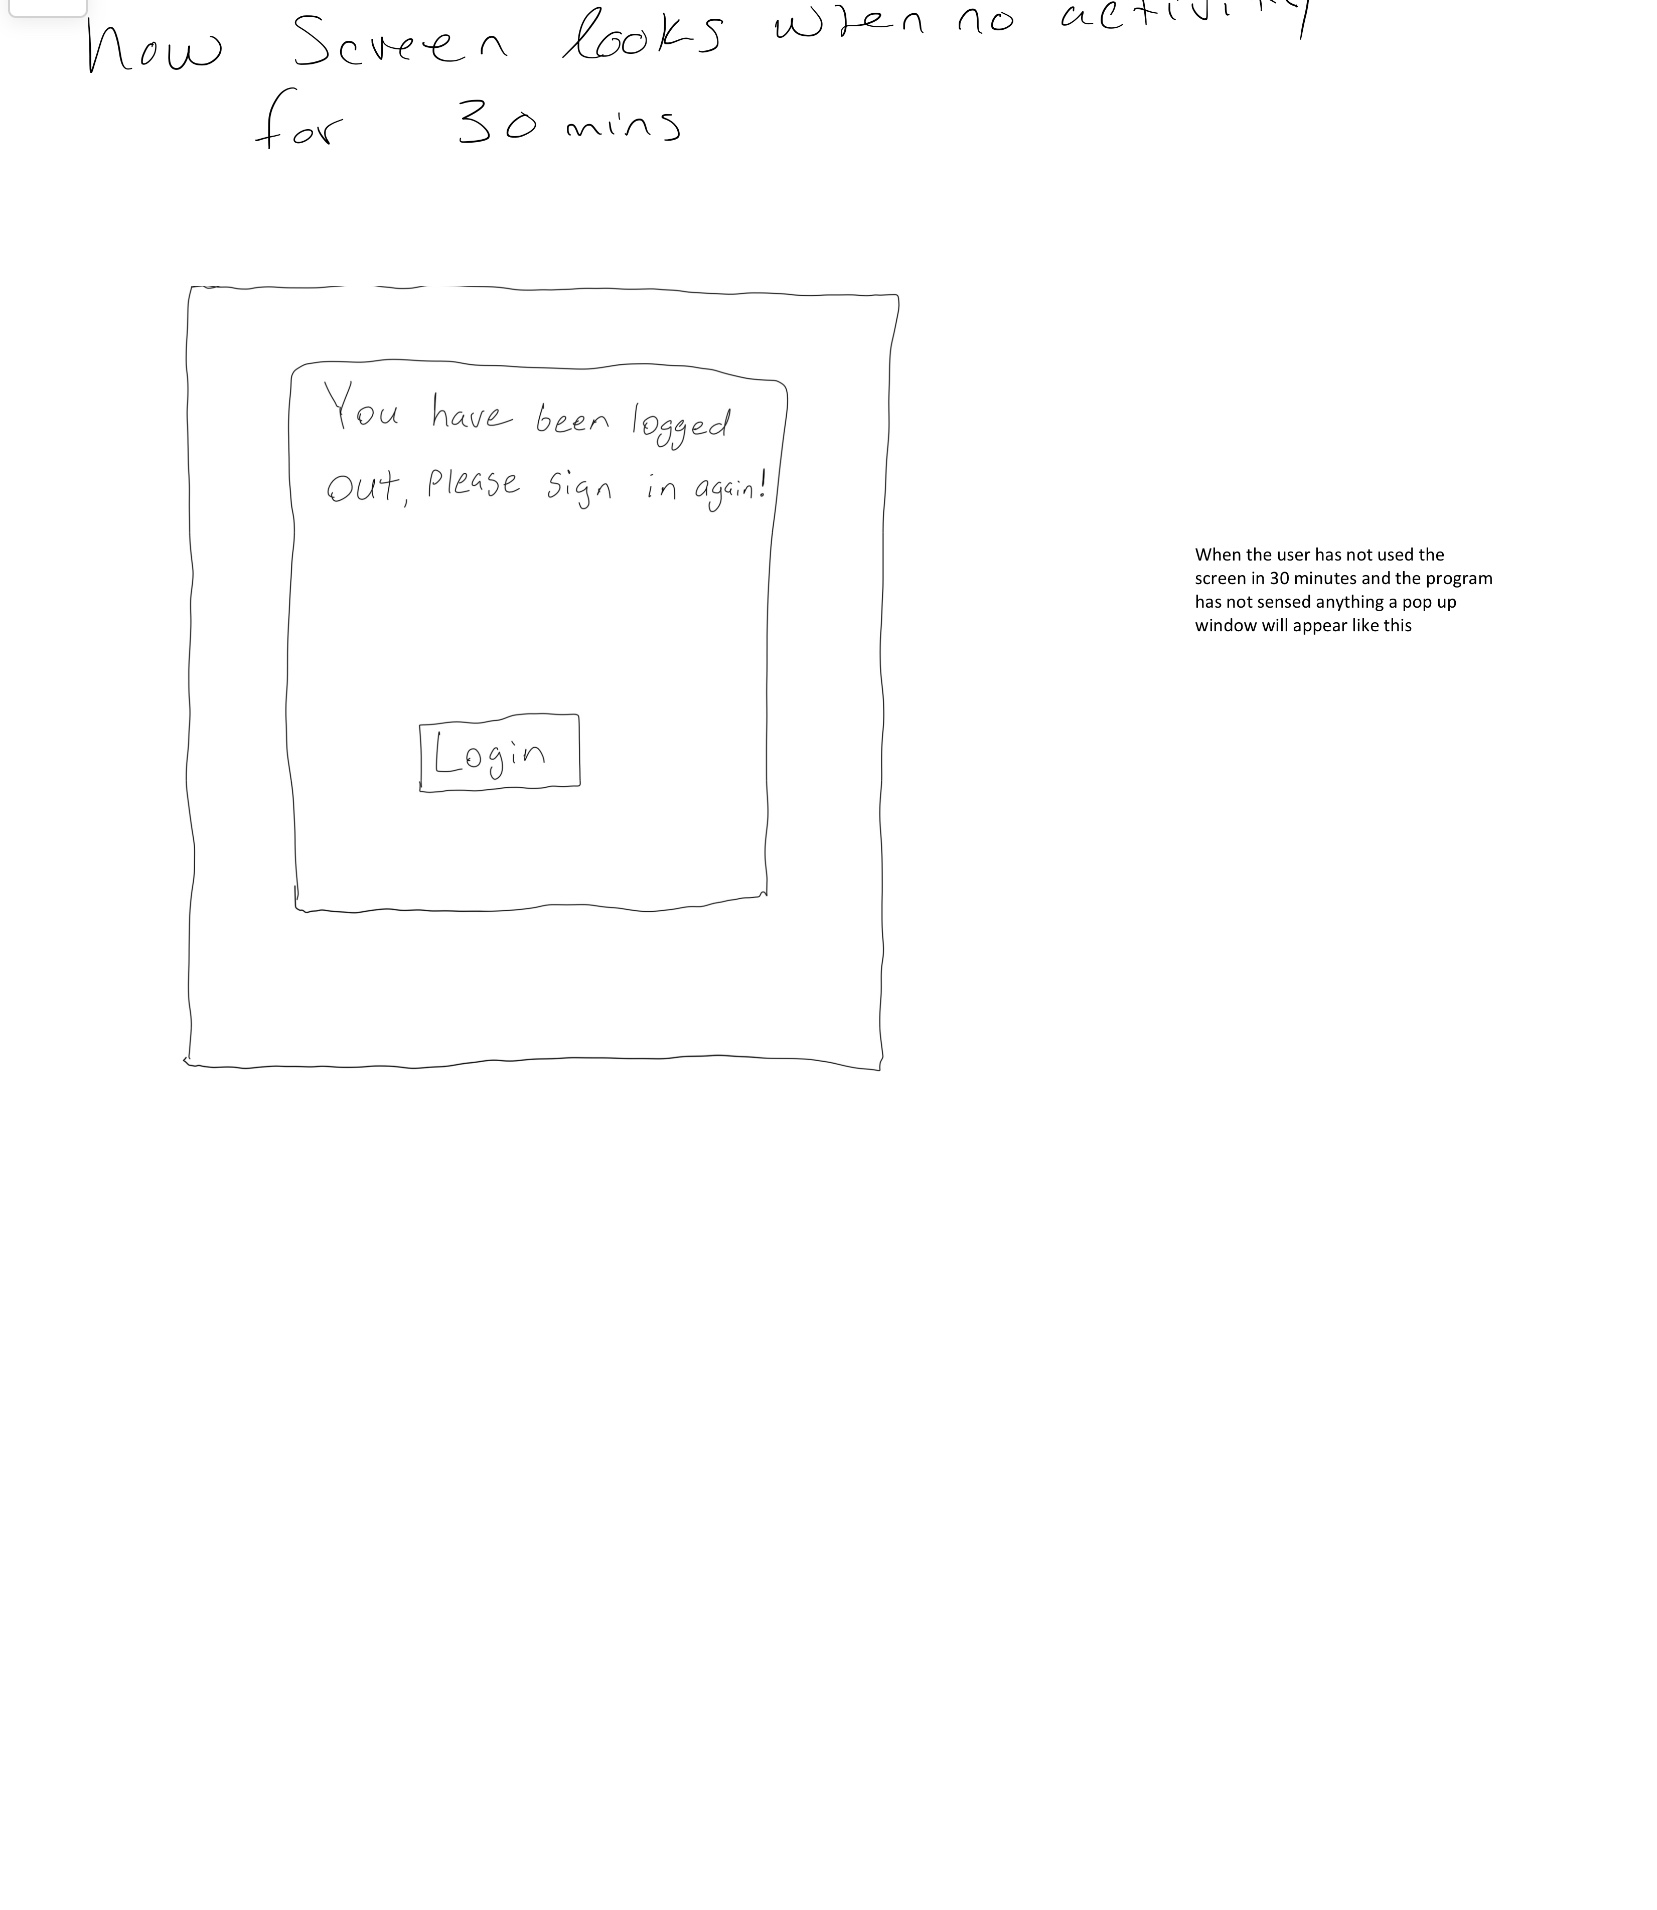 how Screen looks when no activity
for 30 mins
You have been logged
out, please sign in again!
When the user has not used the
screen in 30 minutes and the program
has not sensed anything a pop up
window will appear like this
Login